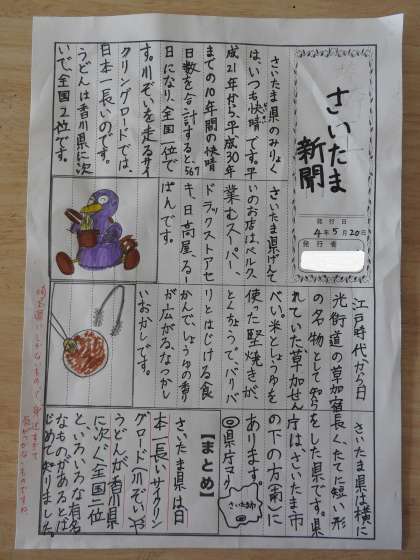 さいたま
新聞
発行日
4年5月20日
発行者
さいたま県のみりょく
は、いつも快晴です。平
成21年から、平成30年
までの10年間の快晴
日数を合計すると、567
日になり、全国一位で
す。川ぞいを走るサイ
クリングロードでは、
日本一長いのです。
うどんは香川県に次
いで、全国2位です。
さいたま県げんて
いのお店は、ベルク
業むスーパー、
ドラックストアセ
キ、日高屋、るー
ぱんです。
江戸時代から日
光街道の草加宿
の名物として知ら
れていた草加せん
べい。米としょうゆを
使った堅焼きが、
とくちょうで、バリバ
リとはじける食
かんで、しょうゆの香り
が広がる、なつかし
いおかしです。
さいたま県は横に
長く、たてに短い形
をした県です。県
庁はさいたま市
の下の方(南)に
あります。
◎県庁マーク
さいたま市
【まとめ】
さいたま県は、日
本一長いサイクリン
グロード(川ぞい)や
うどんが香川県
に次ぐ、全国二位
と、いろいろな有名
なものがあるとは
じめて知りました。
身近すぎて
気がつかないものですね。